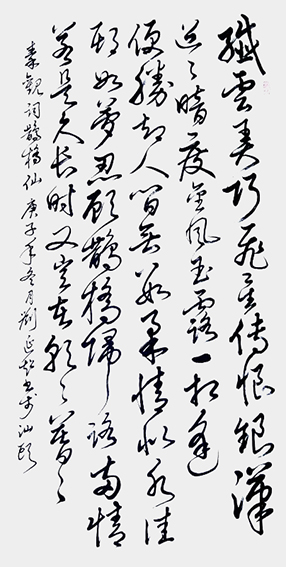 纖雲弄巧飛星传恨銀漢
迢々暗度金風玉露一相逢
便勝却人间無数柔情似水佳
期如夢忍顧鵲橋歸路两情
若是久长时又豈在朝々暮々
秦觀词鵲橋仙 庚子年冬月劉延書於汕頭